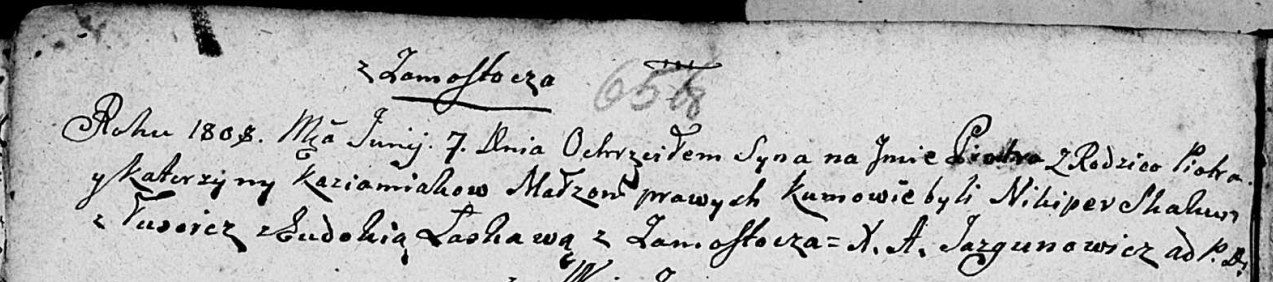 z Zamosłocza 656
Roku 1808. Mca Junij. 7. Dnia Ochrzciłem Syna na Jmie Piotra z Rodzico Piotra
y Katerzyny Kaziamiakow Małzon prawych Kumowie byli Nikiper Skakun
z Łusoicz z Eudokią Laskawą z Zamosłocza = X. A. Jazgunowicz ad P. D.